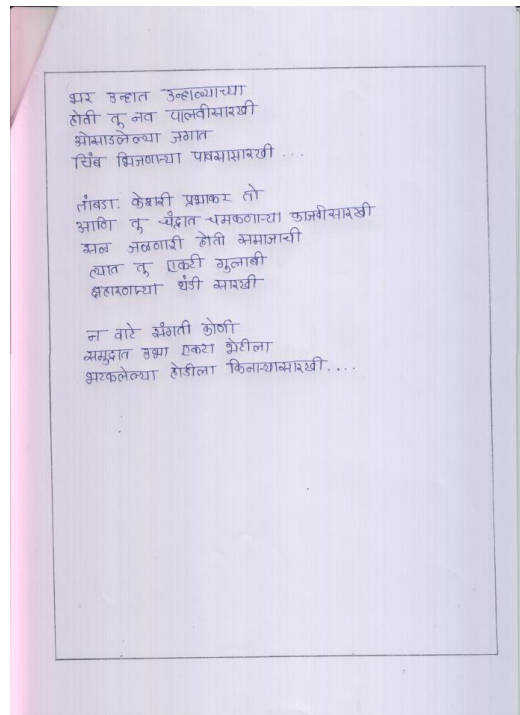 भर उन्हात उन्हाळ्याच्या
होती तू नव पालवीसारखी
ओसाडलेल्या जगात
चिंब भिजणाऱ्या पावसासारखी ...
तांबडा. केशरी प्रभाकर तो
आणि तू चंद्रात चमकणाऱ्या काजवीसारखी
सल जळणारी होती समाजाची
त्यात तू एकटी गुलाबी
शहारणाऱ्या थंडी सारखी
न वाटे संगती कोणी
समुद्रात उभा एकटा भेटीला
भटकलेल्या होडीला किनाऱ्यासारखी....